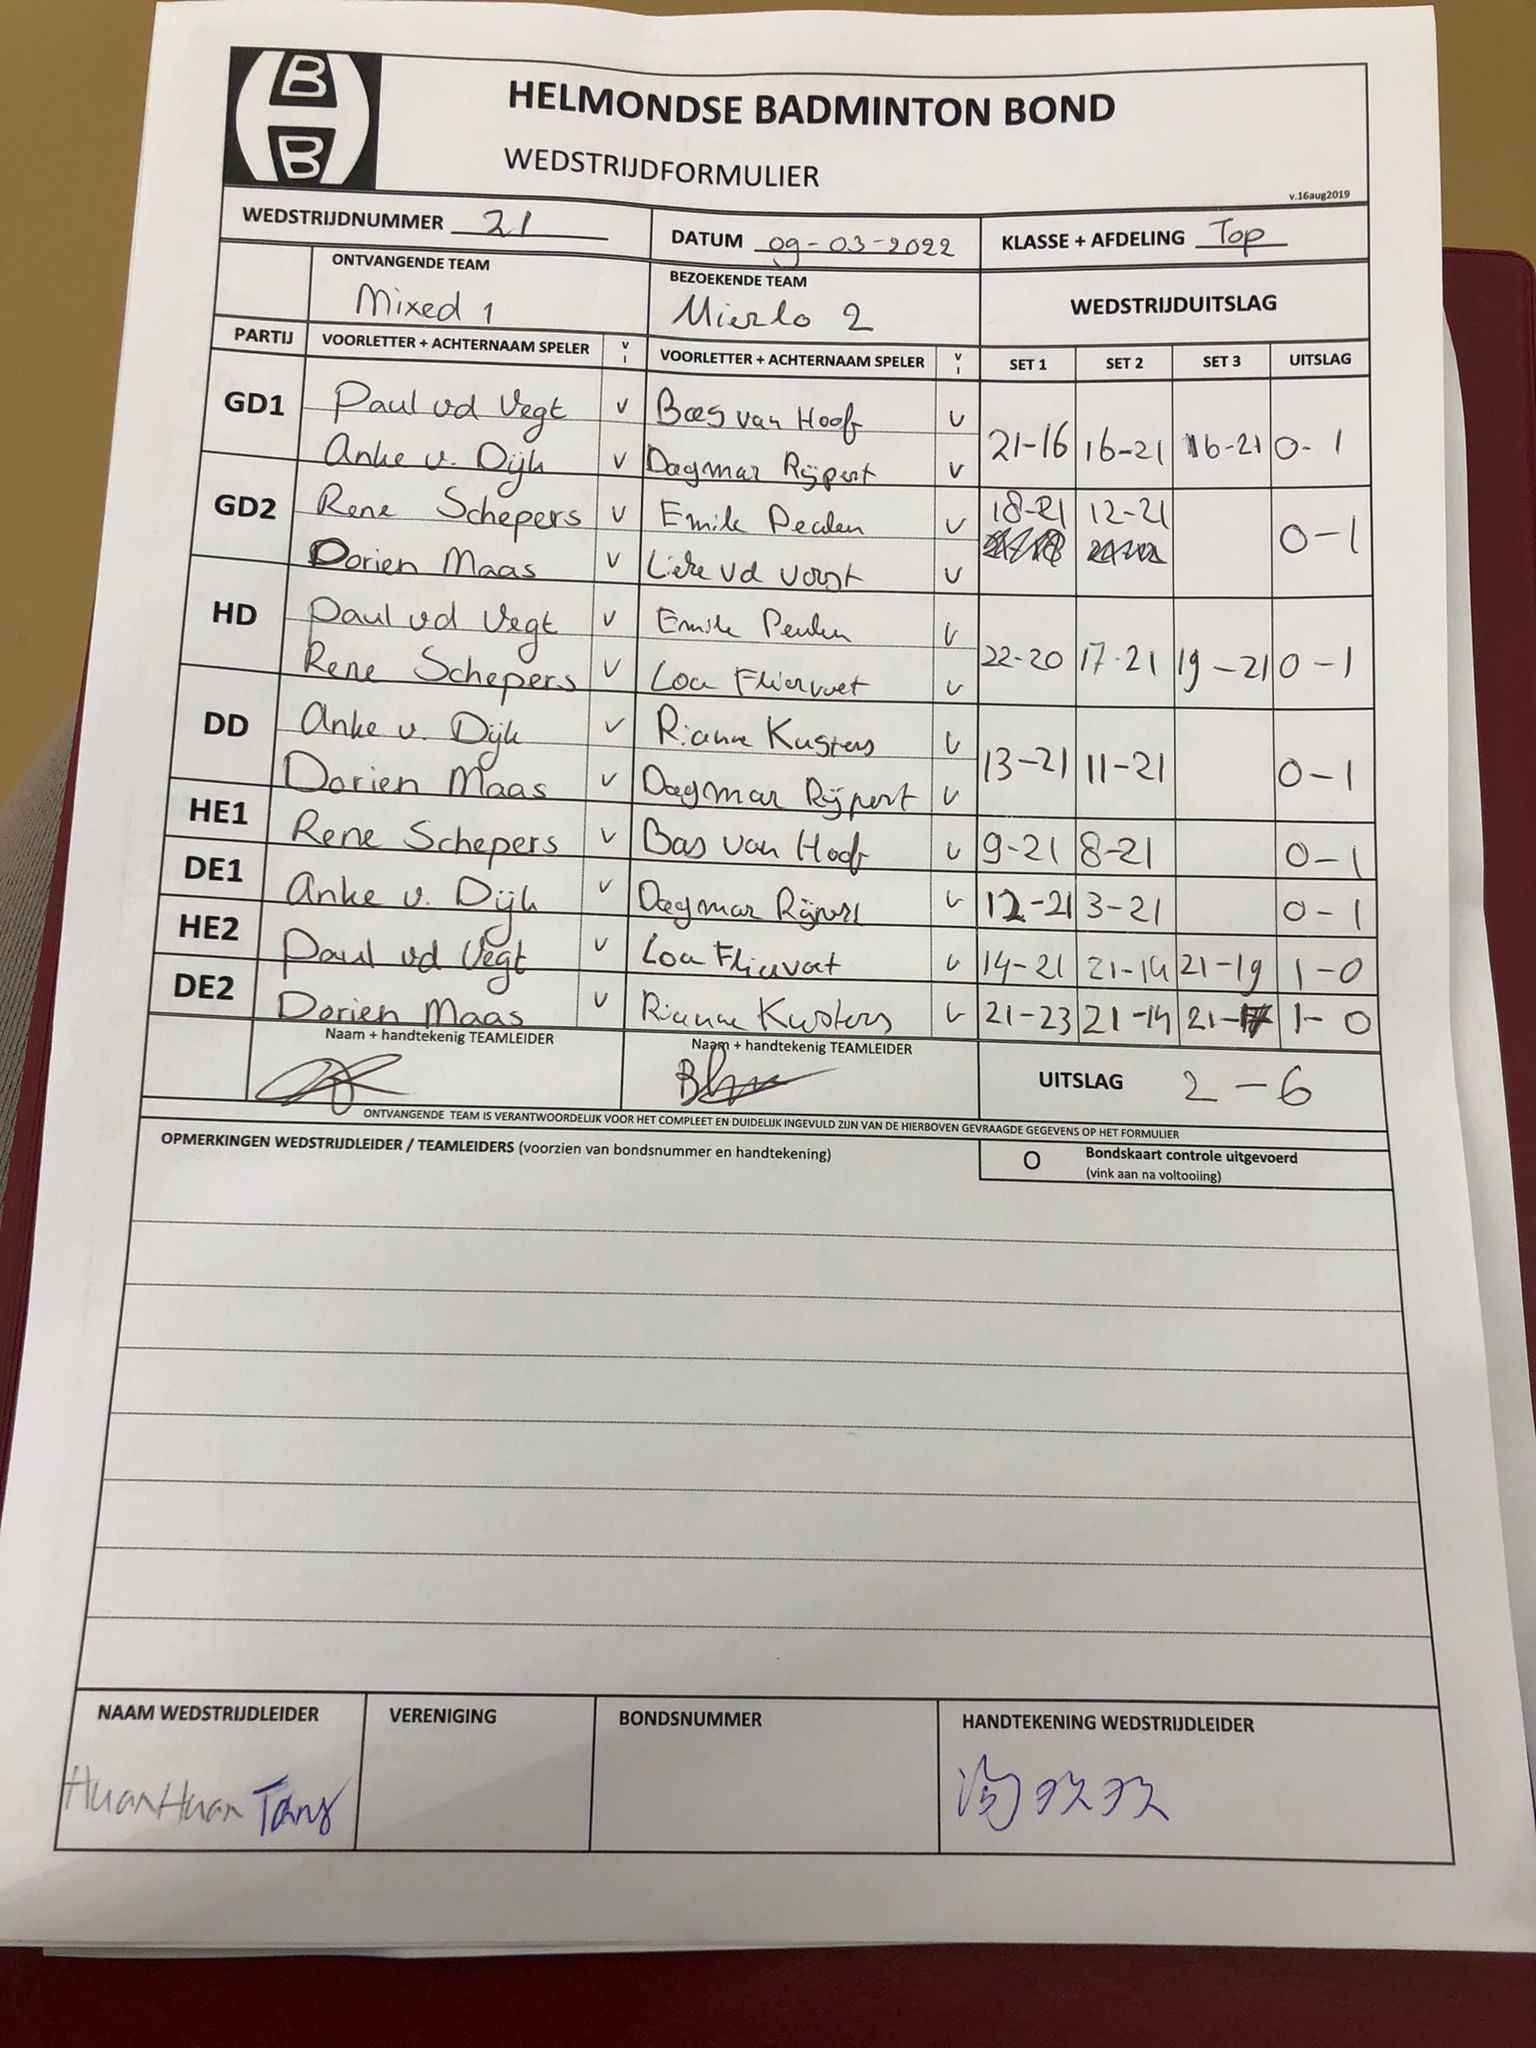 B
B
HELMONDSE BADMINTON BOND
WEDSTRIJDFORMULIER
v.16aug2019
WEDSTRIJDNUMMER 21 DATUM 09-03-2022 KLASSE + AFDELING Top
ONTVANGENDE TEAM BEZOEKENDE TEAM WEDSTRIJDUITSLAG
Mixed 1 Mierlo 2
PARTIJ VOORLETTER + ACHTERNAAM SPELER V I VOORLETTER + ACHTERNAAM SPELER V I SET 1 SET 2 SET 3 UITSLAG
GD1 Paul vd Vegt v Bas van Hoof v 21-16 16-21 16-21 0-1
Anke v. Dijk v Dagmar Rijpert v
GD2 Rene Schepers v Emile Peulen v 18-21 12-21 0-1
Dorien Maas v vd Vorst v
HD Paul vd Vegt v Emile Peulen v 22-20 17-21 19-21 0-1
Rene Schepers v Loa Fliervoet v
DD Anke v. Dijk v Rianne Kusters v 13-21 11-21 0-1
Dorien Maas v Dagmar Rijpert v
HE1 Rene Schepers v Bas van Hoof v 9-21 8-21 0-1
DE1 Anke v. Dijk v Dagmar Rijpert v 12-21 3-21 0-1
HE2 Paul vd Vegt v Loa Fliervoet v 14-21 21-14 21-19 1-0
DE2 Dorien Maas v Rianne Kusters v 21-23 21-14 21-17 1-0
Naam + handtekenig TEAMLEIDER Naam + handtekenig TEAMLEIDER UITSLAG 2-6
ONTVANGENDE TEAM IS VERANTWOORDELIJK VOOR HET COMPLEET EN DUIDELIJK INGEVULD ZIJN VAN DE HIERBOVEN GEVRAAGDE GEGEVENS OP HET FORMULIER
OPMERKINGEN WEDSTRIJDLEIDER / TEAMLEIDERS (voorzien van bondsnummer en handtekening) O Bondskaart controle uitgevoerd
(vink aan na voltooiing)
NAAM WEDSTRIJDLEIDER VERENIGING BONDSNUMMER HANDTEKENING WEDSTRIJDLEIDER
HuanHuan Tang